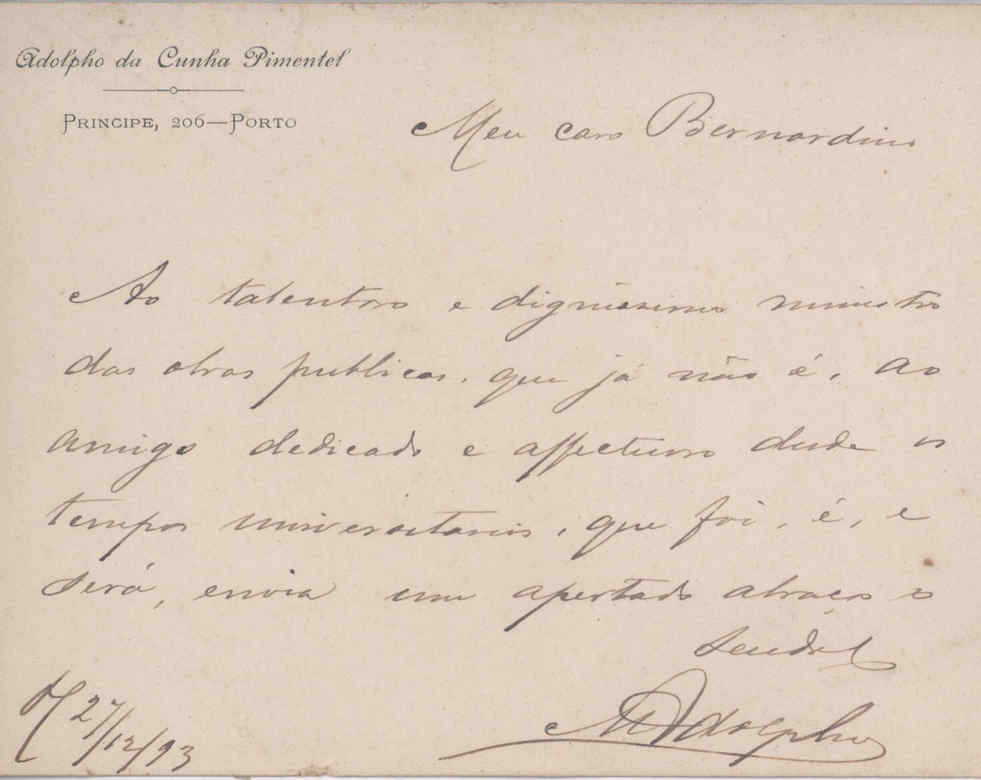 Adolpho da Cunha Pimentel
PRINCIPE, 206—PORTO
Meu caro Bernardino
Ao talentoso e dignissimo ministro
das obras publicas, que já não é, ao
amigo dedicado e affectuoso desde os
tempos universitarios, que foi, é, e
será, envia um apertado abraço o
Adolpho
27/12/93